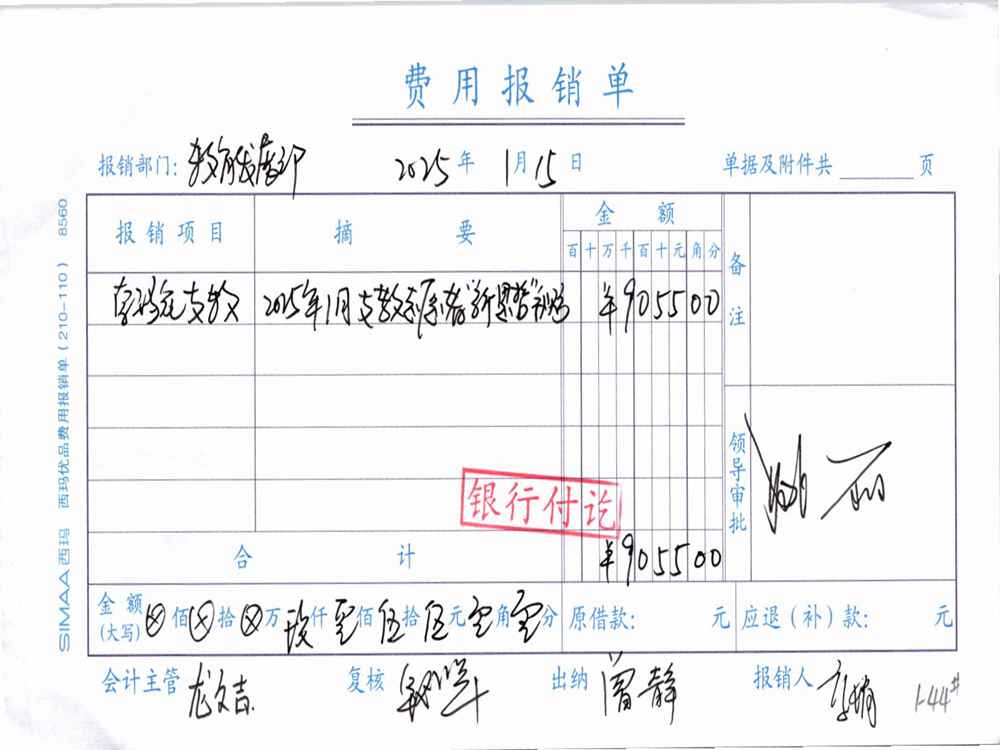 费用报销单
报销部门: 教育发展部 2025年1月15日 单据及附件共 页
报销项目 摘要 金额 备注
百十万千百十元角分
支教 2025年1月支教 ¥905500
领导审批
银行付讫
合计 ¥905500
金额(大写) ⊗佰⊗拾⊗万玖仟零佰伍拾伍元零角零分 原借款: 元 应退(补)款: 元
会计主管 龙文吉 复核 出纳 曾静 报销人 1-44#
SIMAA西玛 西玛优品费用报销单(210-110) 8560